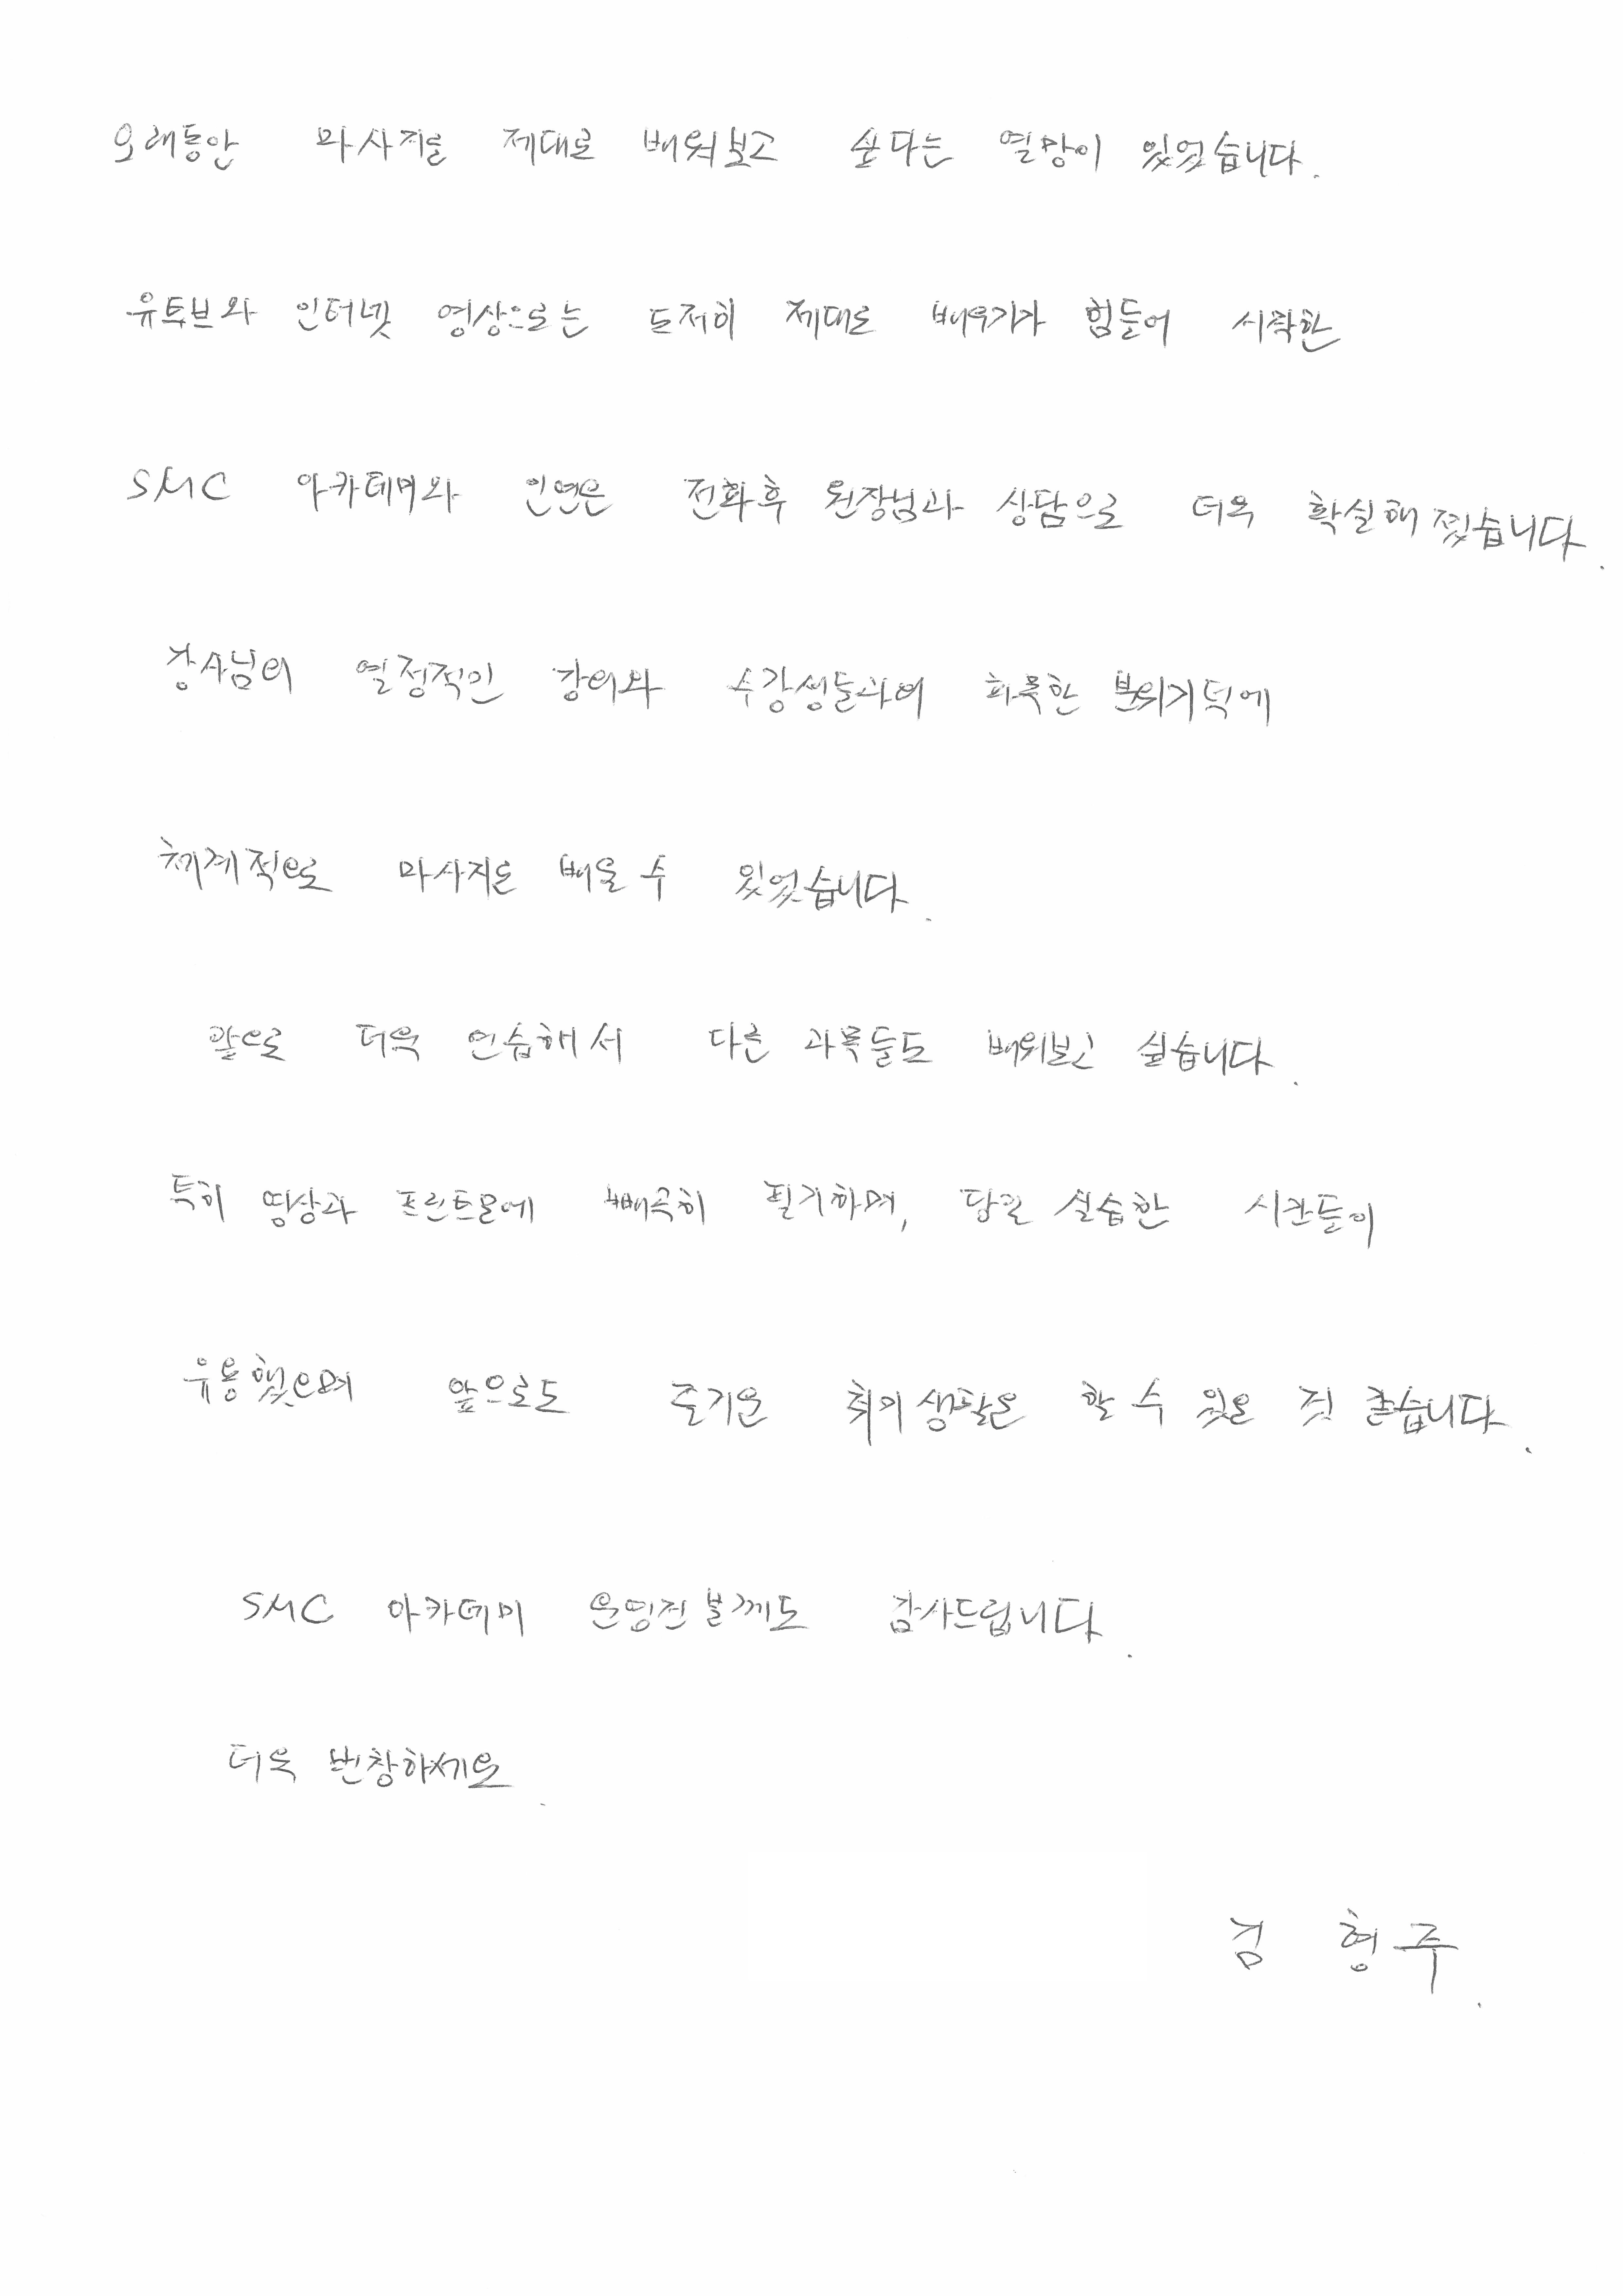 오래동안 마사지를 제대로 배워보고 싶다는 열망이 있었습니다.
유튜브와 인터넷 영상으로는 도저히 제대로 배우기가 힘들어 시작한
SMC 아카데미와 인연은 전화후 원장님과 상담으로 더욱 확실해졌습니다.
강사님의 열정적인 강의와 수강생들과의 화목한 분위기덕에
체계적으로 마사지를 배울 수 있었습니다.
앞으로 더욱 연습해서 다른 과목들도 배워보고 싶습니다.
특히 영상과 프린트물에 빼곡히 필기하며, 당일 실습한 시간들이
유용했으며 앞으로도 즐거운 취미생활을 할 수 있을 것 같습니다.
SMC 아카데미 운영진분께도 감사드립니다.
더욱 번창하세요.
김 형주.